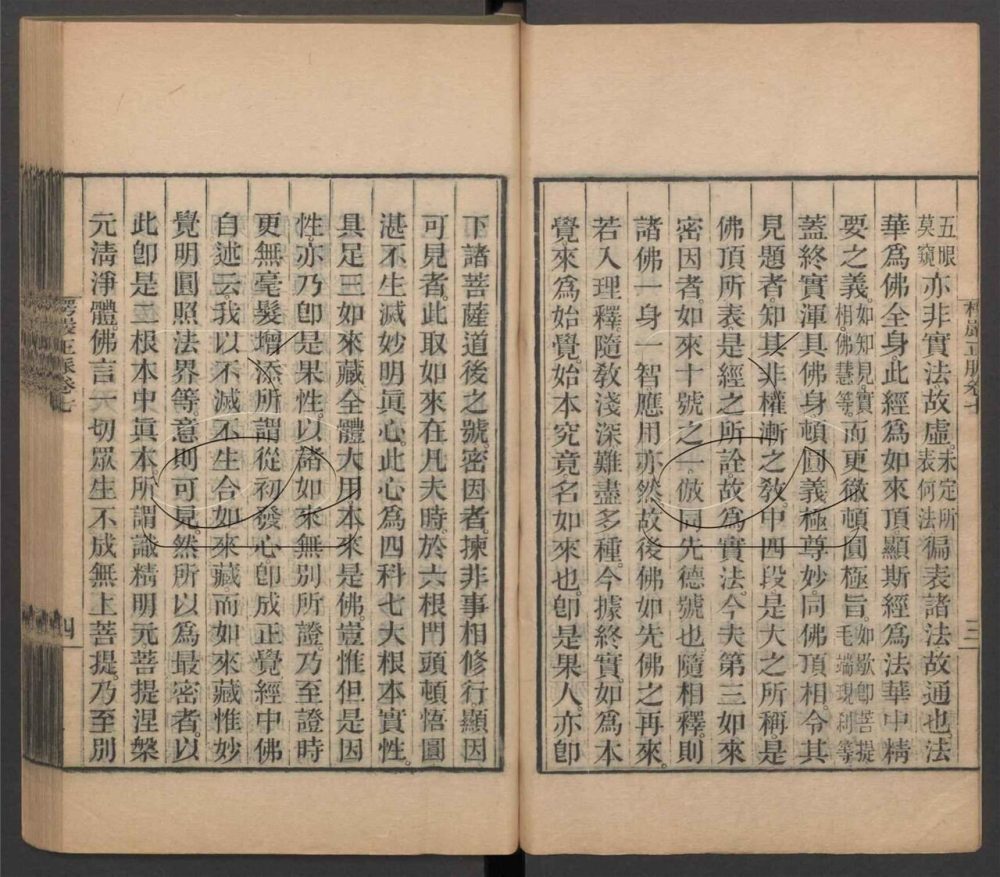 五眼莫窺亦非實法故虛。未定所表何法徧表諸法故通也。法
華為佛全身此經為如來頂顯斯經為法華中精
要之義。如知見。實相。佛慧等。而更徹頓圓極旨。如歇即菩提毛端現刹等
蓋終實渾具佛身頓圓義極尊妙。同佛頂相。令其
見題者。知其非權漸之教。中四段是大之所稱是
佛頂所表是經之所詮故為實法。今夫第三如來
密因者。如來十號之一。倣同先德號也。隨相釋。則
諸佛一身一智應用亦然故後佛如先佛之再來。
若入理釋隨教淺深難盡多種。今據終實。如為本
覺來為始覺。始本究竟名如來也。卽是果人亦卽
楞嚴正脈卷七
三
下諸菩薩道後之號密因者。揀非事相修行顯因
可見者。此取如來在凡夫時於六根門頭頓悟圓
湛不生滅妙明眞心。此心為四科七大根本實性。
具足三如來藏全體大用本來是佛。豈惟但是因
性。亦乃卽是果性。以諸如來無別所證。乃至證時
更無毫髮增添所謂從初發心。卽成正覺。經中佛
自述云我以不滅不生合如來藏。而如來藏惟妙
覺明圓照法界等。意則可見。然所以為最密者。以
此卽是二根本中眞本所謂識精明元菩提涅槃
元清淨體。佛言一切眾生不成無上菩提。乃至別
楞嚴正脈卷七
四